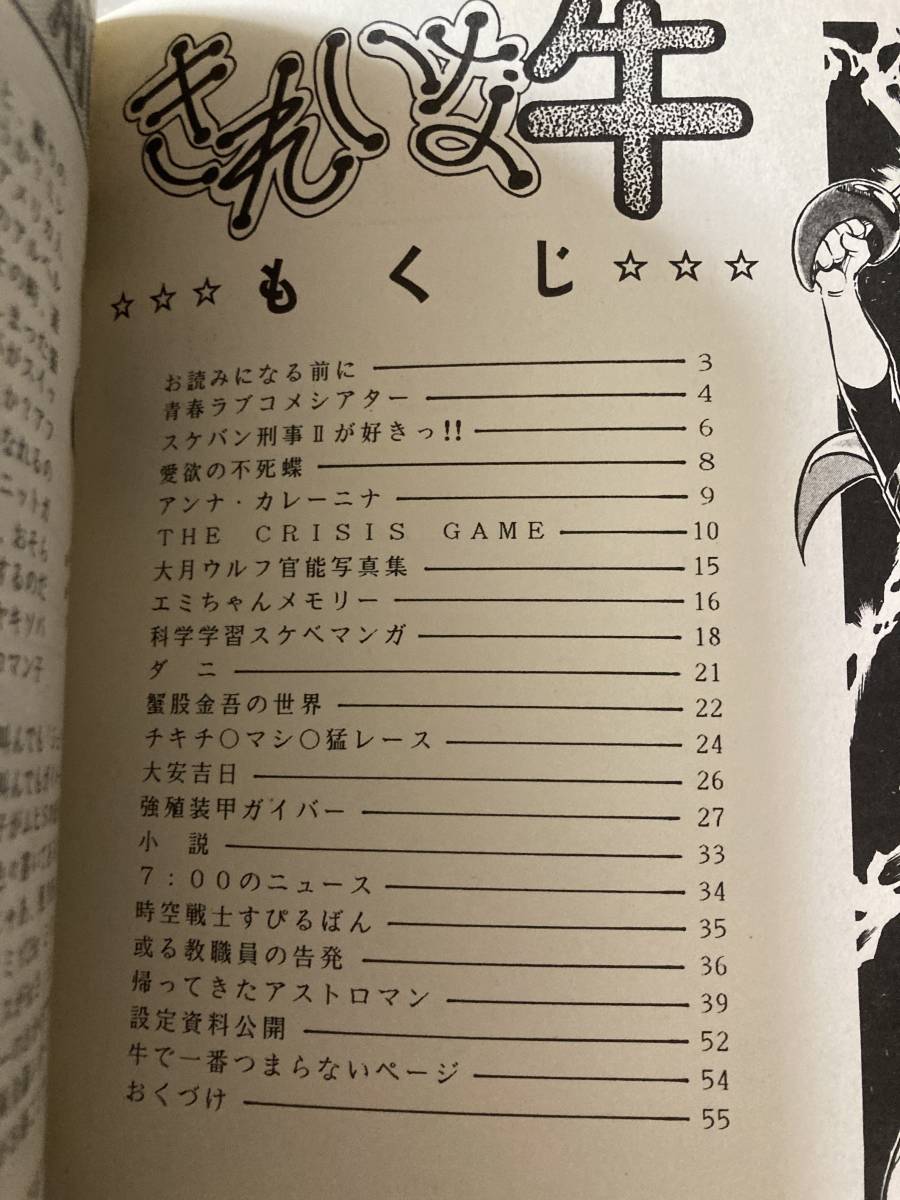 きれいな牛
☆☆☆もくじ☆☆☆
お読みになる前に 3
青春ラブコメシアター 4
スケバン刑事Ⅱが好きっ!! 6
愛欲の不死蝶 8
アンナ・カレーニナ 9
THE CRISIS GAME 10
大月ウルフ官能写真集 15
エミちゃんメモリー 16
科学学習スケベマンガ 18
ダニ 21
蟹股金吾の世界 22
チキチ〇マシ〇猛レース 24
大安吉日 26
強殖装甲ガイバー 27
小説 33
7:00のニュース 34
時空戦士すぴるばん 35
或る教職員の告発 36
帰ってきたアストロマン 39
設定資料公開 52
牛で一番つまらないページ 54
おくづけ 55